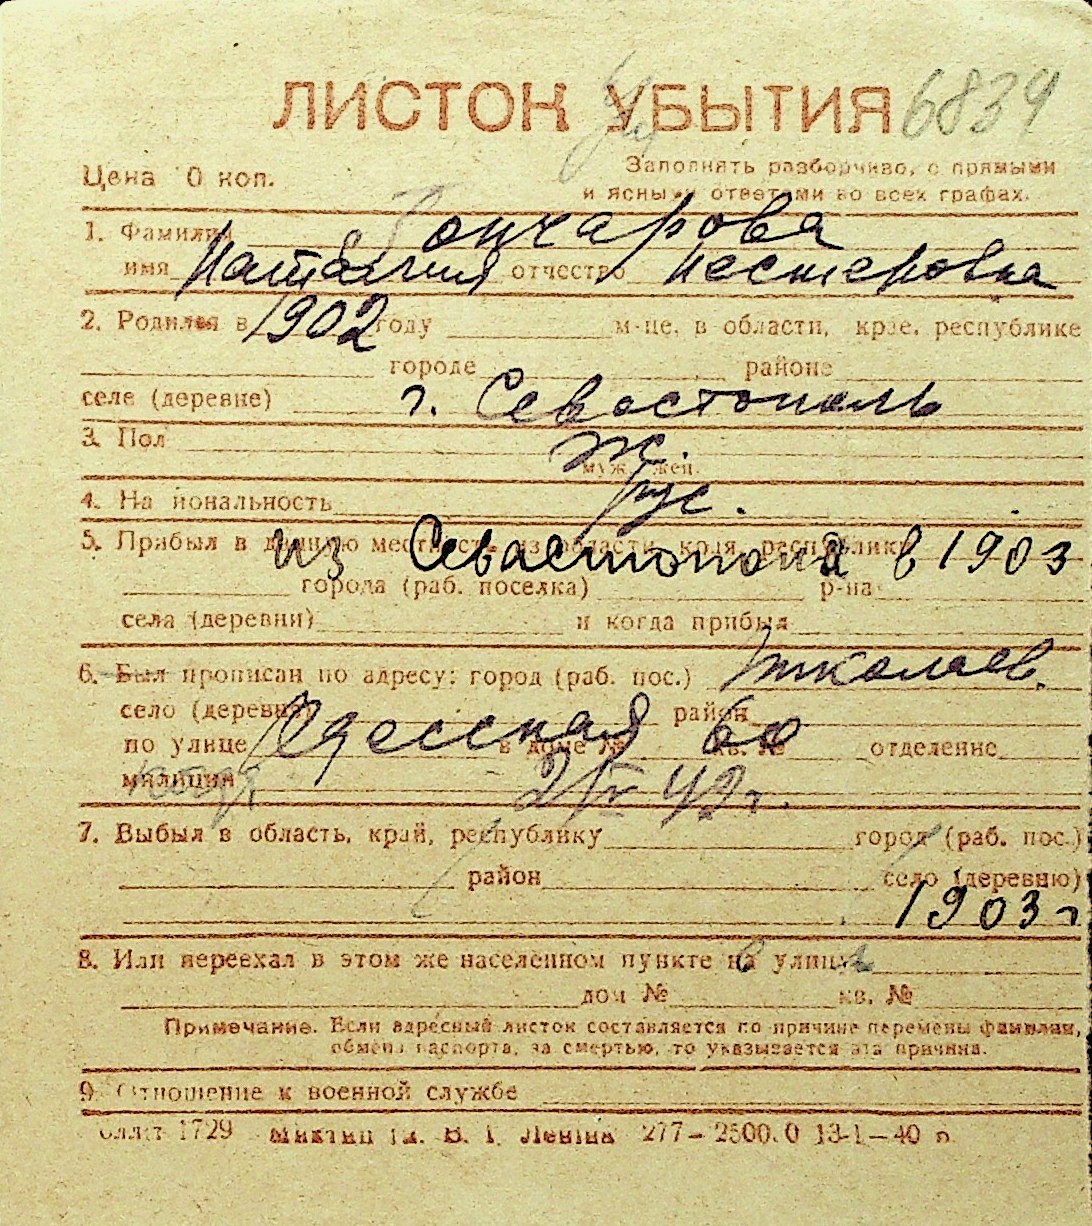 ЛИСТОК УБЫТИЯ 6839
Цена 0 коп.
Заполнять разборчиво, с прямыми
и ясными ответами во всех графах.
1. Фамилия Гончарова
имя Наталия отчество Нестеровна
2. Родился в 1902 году м-це, в области, крае, республике
городе районе
селе (деревне) г. Севастополь
3. Пол Ж.
муж. жен.
4. Национальность рус.
5. Прибыл в данную местность из области, края, республики
из Севастополя в 1903
города (раб. поселка) р-на
села (деревни) и когда прибыл
6. Был прописан по адресу: город (раб. пос.) Николаев.
село (деревня) район
по улице Одесская в доме № 60 кв. № отделение
милиции 2/IV 42 г.
7. Выбыл в область, край, республику город (раб. пос.)
район село (деревню)
1903 г
8. Или переехал в этом же населенном пункте на улицу
дом № кв. №
Примечание. Если адресный листок составляется по причине перемены фамилии,
обмена паспорта, за смертью, то указывается эта причина.
9. Отношение к военной службе
1729 Ленина 277–2500.0 13-1–40 г.